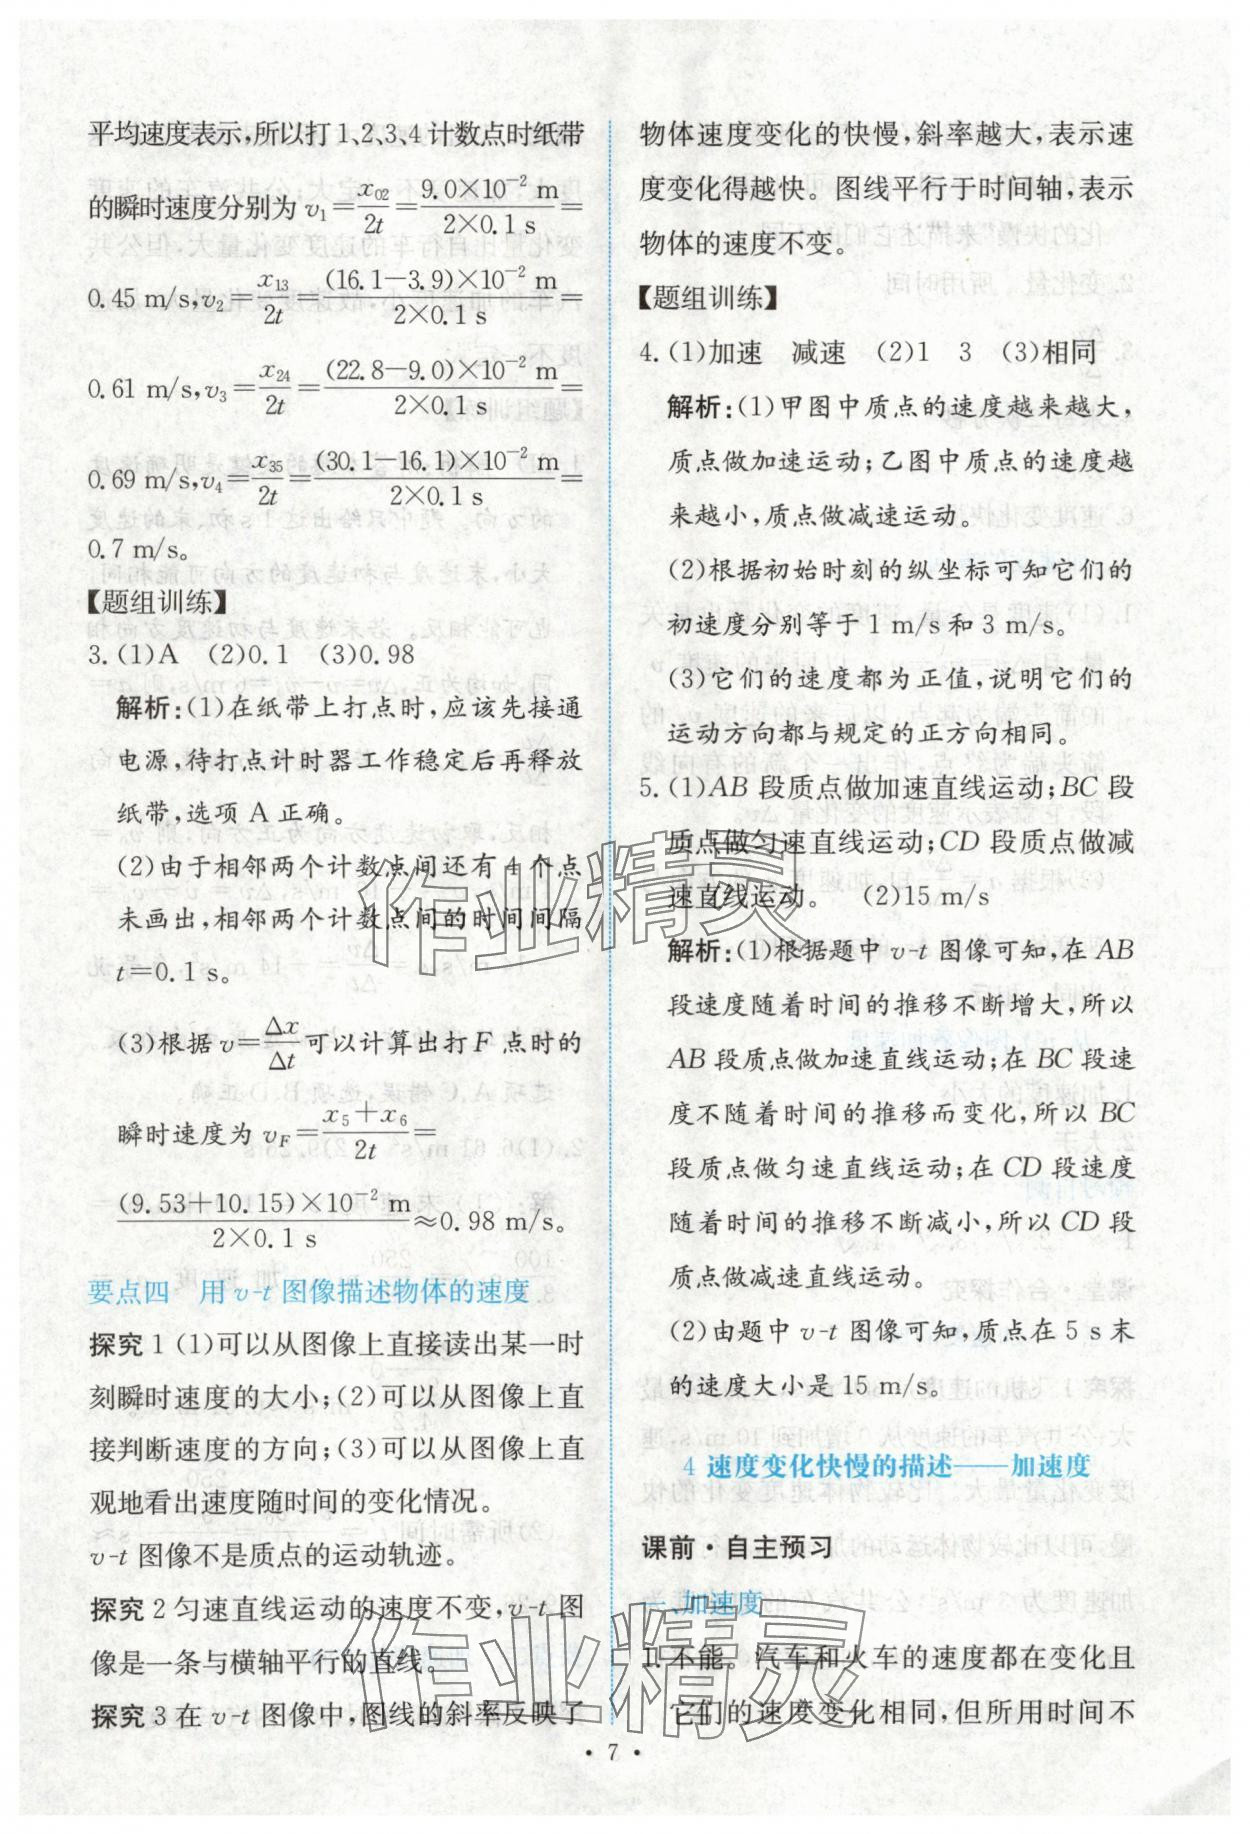 平均速度表示,所以打 1、2、3、4 计数点时纸带
的瞬时速度分别为 v₁=x₀₂/2t=9.0×10⁻² m/2×0.1 s=
0.45 m/s,v₂=x₁₃/2t=(16.1−3.9)×10⁻² m/2×0.1 s=
0.61 m/s,v₃=x₂₄/2t=(22.8−9.0)×10⁻² m/2×0.1 s=
0.69 m/s,v₄=x₃₅/2t=(30.1−16.1)×10⁻² m/2×0.1 s=
0.7 m/s。
【题组训练】
3.(1)A (2)0.1 (3)0.98
解析:(1)在纸带上打点时,应该先接通
电源,待打点计时器工作稳定后再释放
纸带,选项 A 正确。
(2)由于相邻两个计数点间还有 4 个点
未画出,相邻两个计数点间的时间间隔
t=0.1 s。
(3)根据 v=Δx/Δt可以计算出打 F 点时的
瞬时速度为 v_F=x₅+x₆/2t=
(9.53+10.15)×10⁻² m/2×0.1 s≈0.98 m/s。
要点四 用 v-t 图像描述物体的速度
探究 1 (1)可以从图像上直接读出某一时
刻瞬时速度的大小;(2)可以从图像上直
接判断速度的方向;(3)可以从图像上直
观地看出速度随时间的变化情况。
v-t 图像不是质点的运动轨迹。
探究 2 匀速直线运动的速度不变,v-t 图
像是一条与横轴平行的直线。
探究 3 在 v-t 图像中,图线的斜率反映了
物体速度变化的快慢,斜率越大,表示速
度变化得越快。图线平行于时间轴,表示
物体的速度不变。
【题组训练】
4.(1)加速 减速 (2)1 3 (3)相同
解析:(1)甲图中质点的速度越来越大,
质点做加速运动;乙图中质点的速度越
来越小,质点做减速运动。
(2)根据初始时刻的纵坐标可知它们的
初速度分别等于 1 m/s 和 3 m/s。
(3)它们的速度都为正值,说明它们的
运动方向都与规定的正方向相同。
5.(1)AB 段质点做加速直线运动;BC 段
质点做匀速直线运动;CD 段质点做减
速直线运动。 (2)15 m/s
解析:(1)根据题中 v-t 图像可知,在 AB
段速度随着时间的推移不断增大,所以
AB 段质点做加速直线运动;在 BC 段速
度不随着时间的推移而变化,所以 BC
段质点做匀速直线运动;在 CD 段速度
随着时间的推移不断减小,所以 CD 段
质点做减速直线运动。
(2)由题中 v-t 图像可知,质点在 5 s 末
的速度大小是 15 m/s。
4 速度变化快慢的描述——加速度
课前·自主预习
一、加速度
1.不能。汽车和火车的速度都在变化且
它们的速度变化相同,但所用时间不
·7·
作业精灵
作业精灵